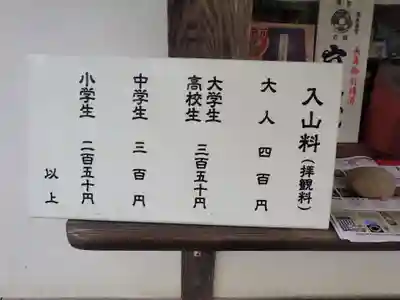 入山料(拝観料)
大人 四百円
大学生
高校生 三百五十円
中学生 三百円
小学生 二百五十円
以上